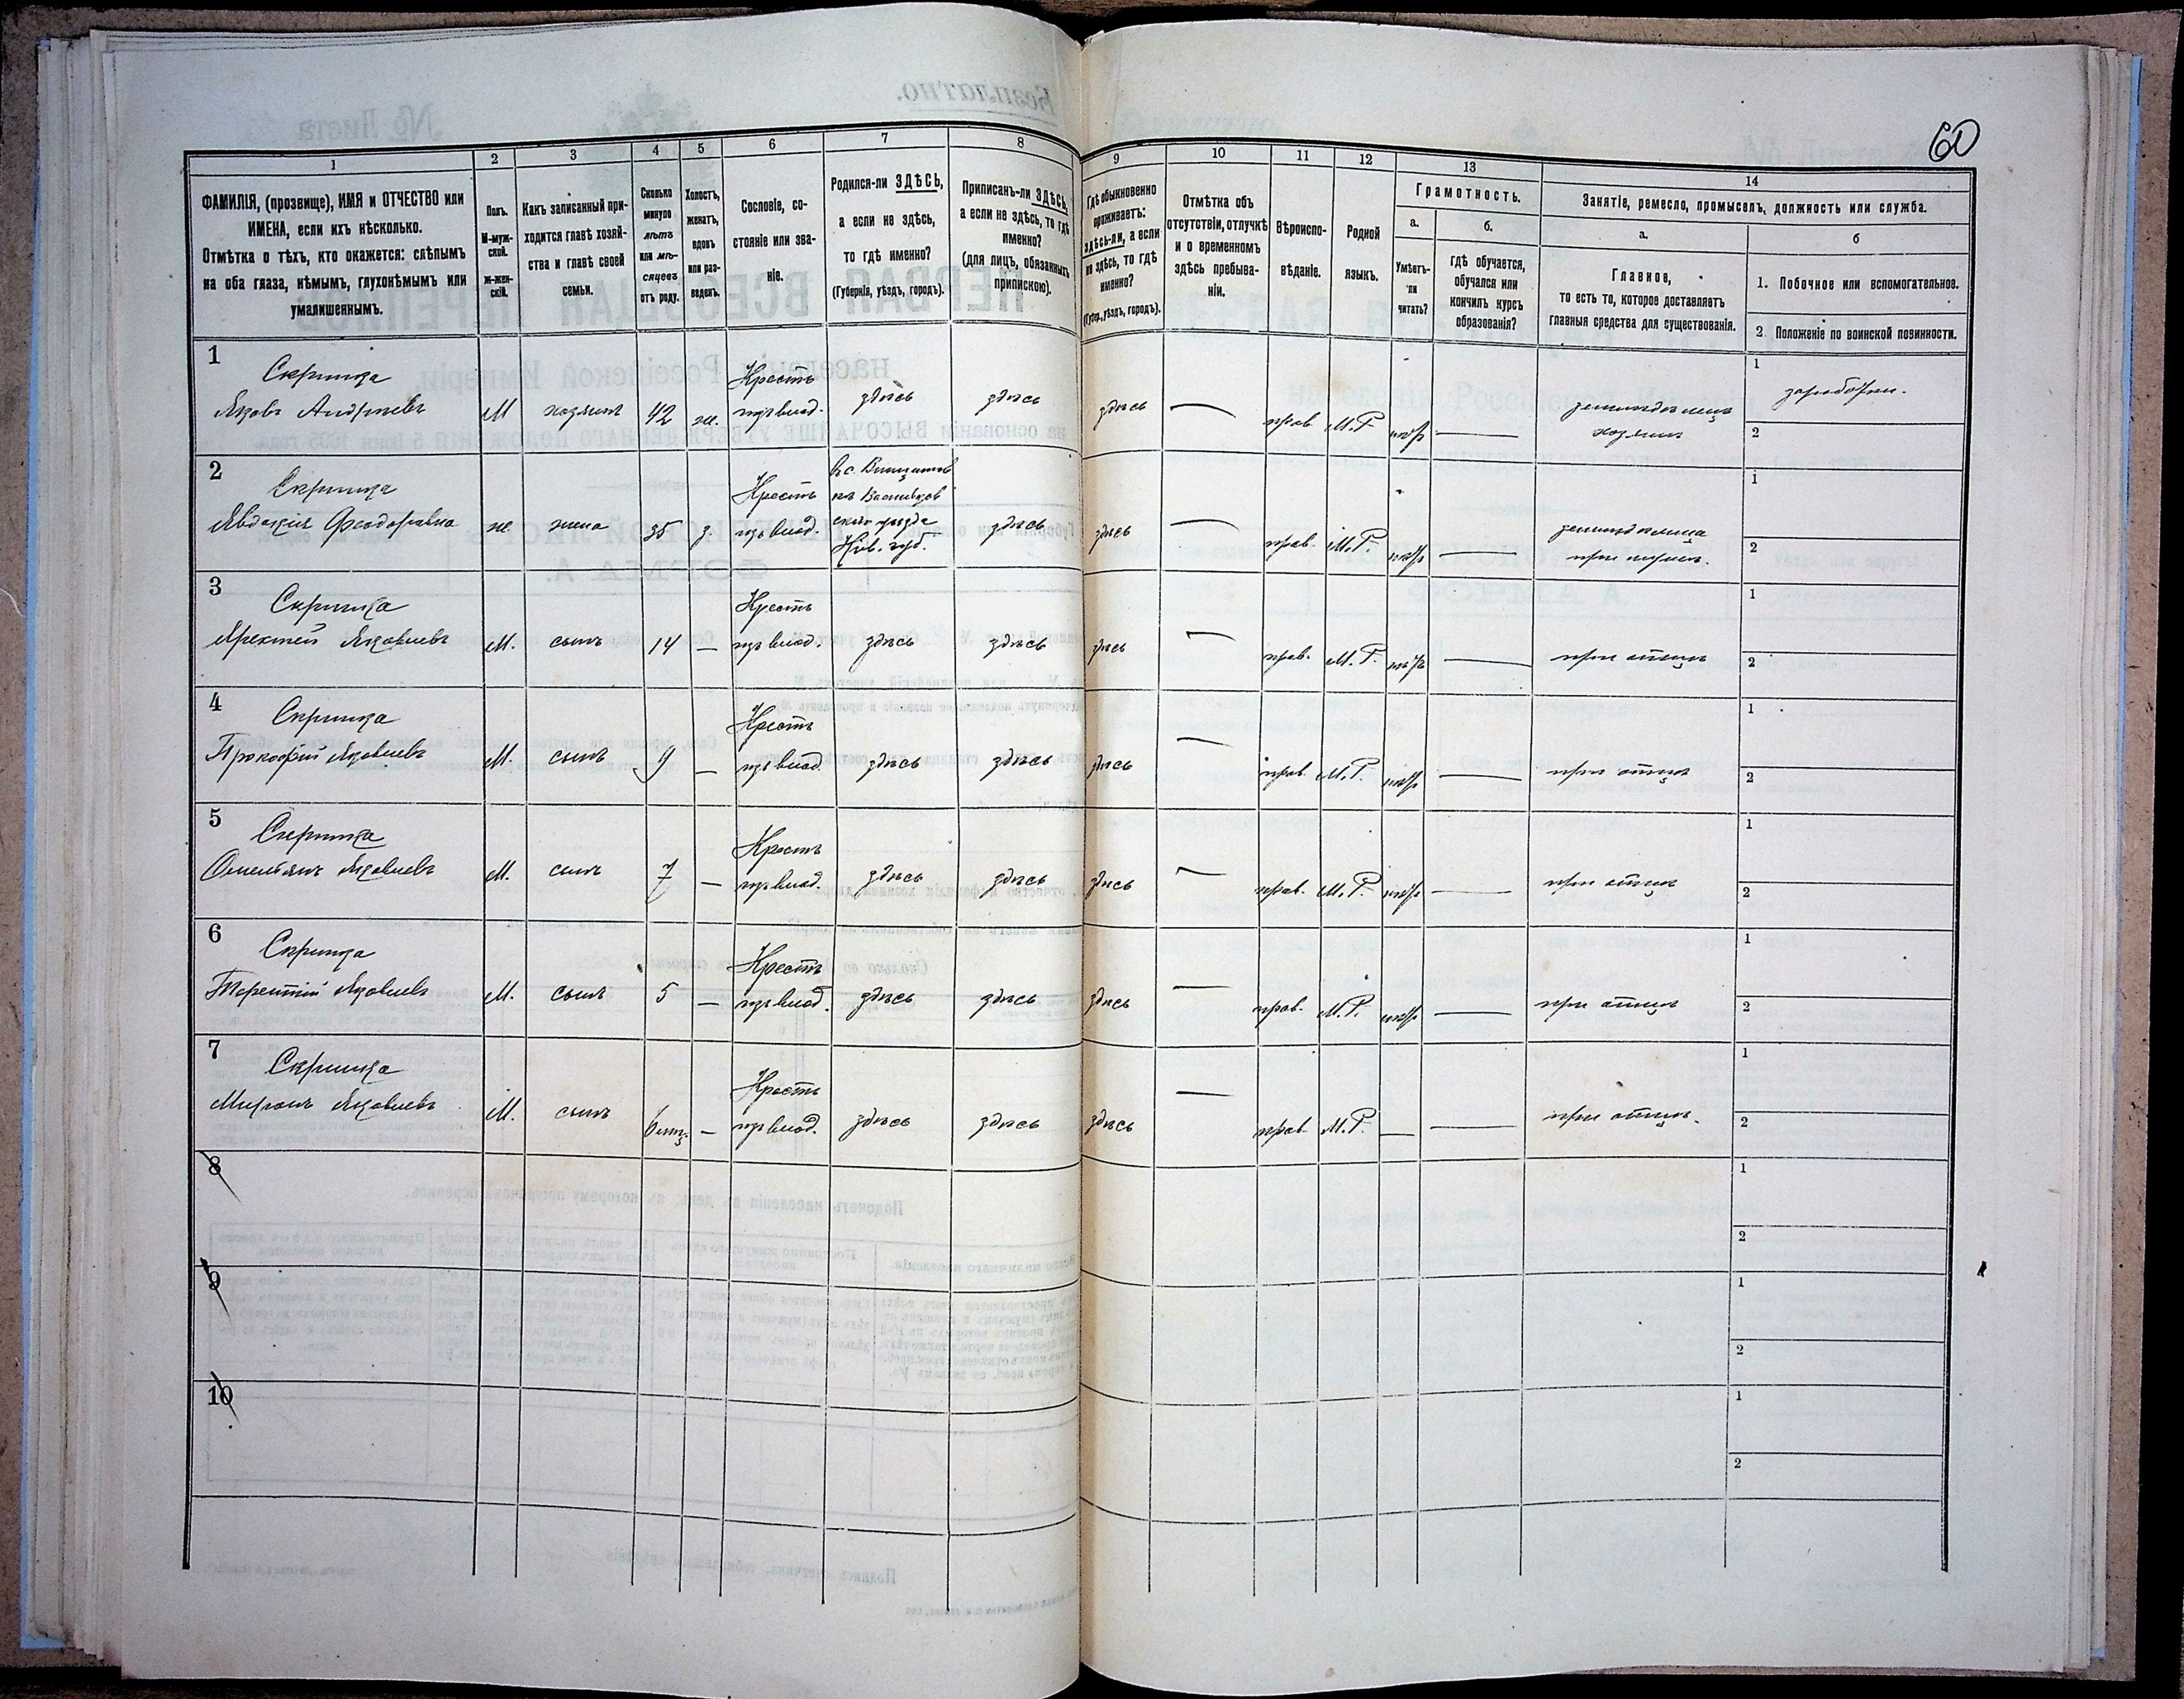 60
1 2 3 4 5 6 7 8 9 10 11 12 13 14
ФАМИЛІЯ, (прозвище), ИМЯ и ОТЧЕСТВО или
ИМЕНА, если ихъ нѣсколько.
Отмѣтка о тѣхъ, кто окажется: слѣпымъ
на оба глаза, нѣмымъ, глухонѣмымъ или
умалишеннымъ.
Полъ.
М-муж-
ской.
ж-жен-
скій.
Какъ записанный при-
ходится главѣ хозяй-
ства и главѣ своей
семьи.
Сколько
минуло
лѣтъ
или мѣ-
сяцевъ
отъ роду.
Холостъ,
женатъ,
вдовъ
или раз-
веденъ.
Сословіе, со-
стояніе или зва-
ніе.
Родился-ли ЗДѢСЬ,
а если не здѣсь,
то гдѣ именно?
(Губернія, уѣздъ, городъ).
Приписанъ-ли ЗДѢСЬ,
а если не здѣсь, то гдѣ
именно?
(для лицъ, обязанныхъ
припискою).
Гдѣ обыкновенно
проживаетъ:
здѣсь-ли, а если
не здѣсь, то гдѣ
именно?
(Губер., уѣздъ, городъ).
Отмѣтка объ
отсутствіи, отлучкѣ
и о временномъ
здѣсь пребыва-
ніи.
Вѣроиспо-
вѣданіе.
Родной
языкъ.
Грамотность.
а.
Умѣетъ-
ли
читать?
б.
гдѣ обучается,
обучался или
кончилъ курсъ
образованія?
Занятіе, ремесло, промыселъ, должность или служба.
а.
Главное,
то есть то, которое доставляетъ
главныя средства для существованія.
б
1. Побочное или вспомогательное.
2. Положеніе по воинской повинности.
1 Скрипка Крестъ 1
Яковъ Андреевъ М хозяинъ 42 ж. изъ влад. здѣсь здѣсь здѣсь — прав М.Р нѣтъ — земледѣлецъ
хозяинъ 2
2 Скрипка Крестъ 1
Явдокія Феодоровна ж. жена 35 з. изъ влад. здѣсь здѣсь — прав. М.Р. нѣтъ —
скаго уѣзда
Кіев. губ.
при мужѣ. 2
3 Скрипка Крестъ 1
Яковлевъ М. сынъ 14 — изъ влад. здѣсь здѣсь здѣсь — прав. М.Р. нѣтъ — при отцѣ 2
4 Скрипка Крестъ 1
Прокофій Яковлевъ М. сынъ 9 — изъ влад. здѣсь здѣсь здѣсь — прав. М.Р. нѣтъ — при отцѣ 2
5 Скрипка Крестъ 1
Омельянъ Яковлевъ М. сынъ 7 — изъ влад. здѣсь здѣсь здѣсь — прав. М.Р. нѣтъ — при отцѣ 2
6 Скрипка Крестъ 1
Терентій Яковлевъ М. сынъ 5 — изъ влад. здѣсь здѣсь здѣсь — прав. М.Р. нѣтъ — при отцѣ 2
7 Скрипка Крестъ 1
Миронъ Яковлевъ М. сынъ 6 мц. — изъ влад. здѣсь здѣсь здѣсь — прав М.Р. — — при отцѣ. 2
8 1
2
9 1
2
10 1
2